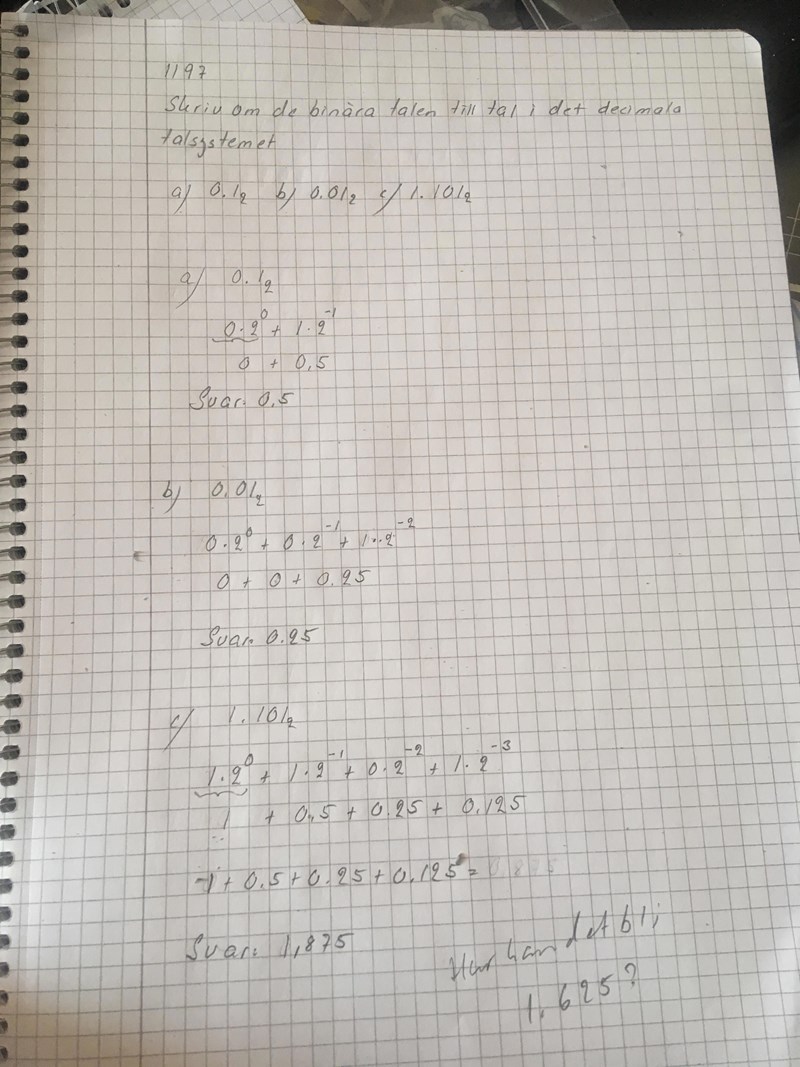 1197
Skriv om de binära talen till tal i det decimala
talsystemet
a) 0.1₂ b) 0.01₂ c) 1.101₂
a) 0.1₂
0·2⁰ + 1·2⁻¹
0 + 0,5
Svar: 0,5
b) 0.01₂
0·2⁰ + 0·2⁻¹ + 1·2⁻²
0 + 0 + 0.25
Svar: 0.25
c) 1.101₂
1·2⁰ + 1·2⁻¹ + 0·2⁻² + 1·2⁻³
1 + 0,5 + 0.25 + 0,125
1 + 0.5 + 0.25 + 0.125 =
Svar: 1,875
Hur kan det bli
1.625?